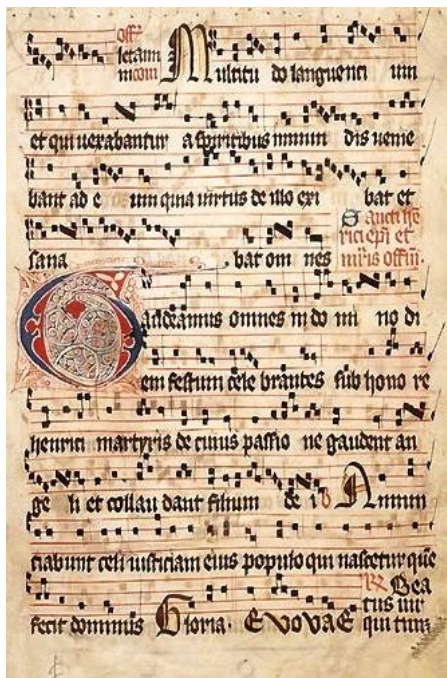 off
letam
m com Multitu do languenti um
et qui uexabantur a spiritibus inmun dis uenie
bant ad e um quia uirtus de illo exi bat et
sana bat om nes
Sancti hē
rici epi et
mris offm.
Gaudeamus omnes in do mi no di
em festum cele brantes sub hono re
henrici martyris de cuius passio ne gaudent an
ge li et collau dant filium de i Annun
ciabunt celi iusticiam eius populo qui nascetur quē
fecit dominus Gloria. Evovae
Bea
tus uir
qui tim